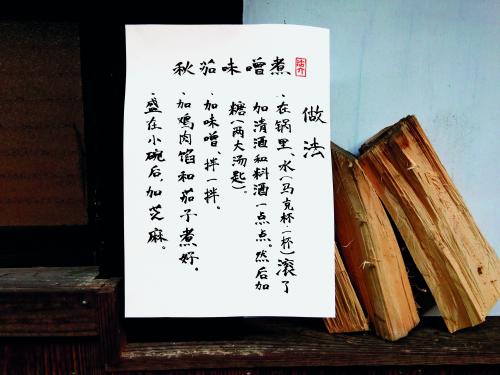 秋茄味噌煮
做法
·在锅里、水(马克杯·一杯)滚了
加清酒和料酒一点点。然后加
糖(两大汤匙)。
·加味噌、拌一拌。
·加鸡肉馅和茄子煮好。
·盛在小碗后,加芝麻。